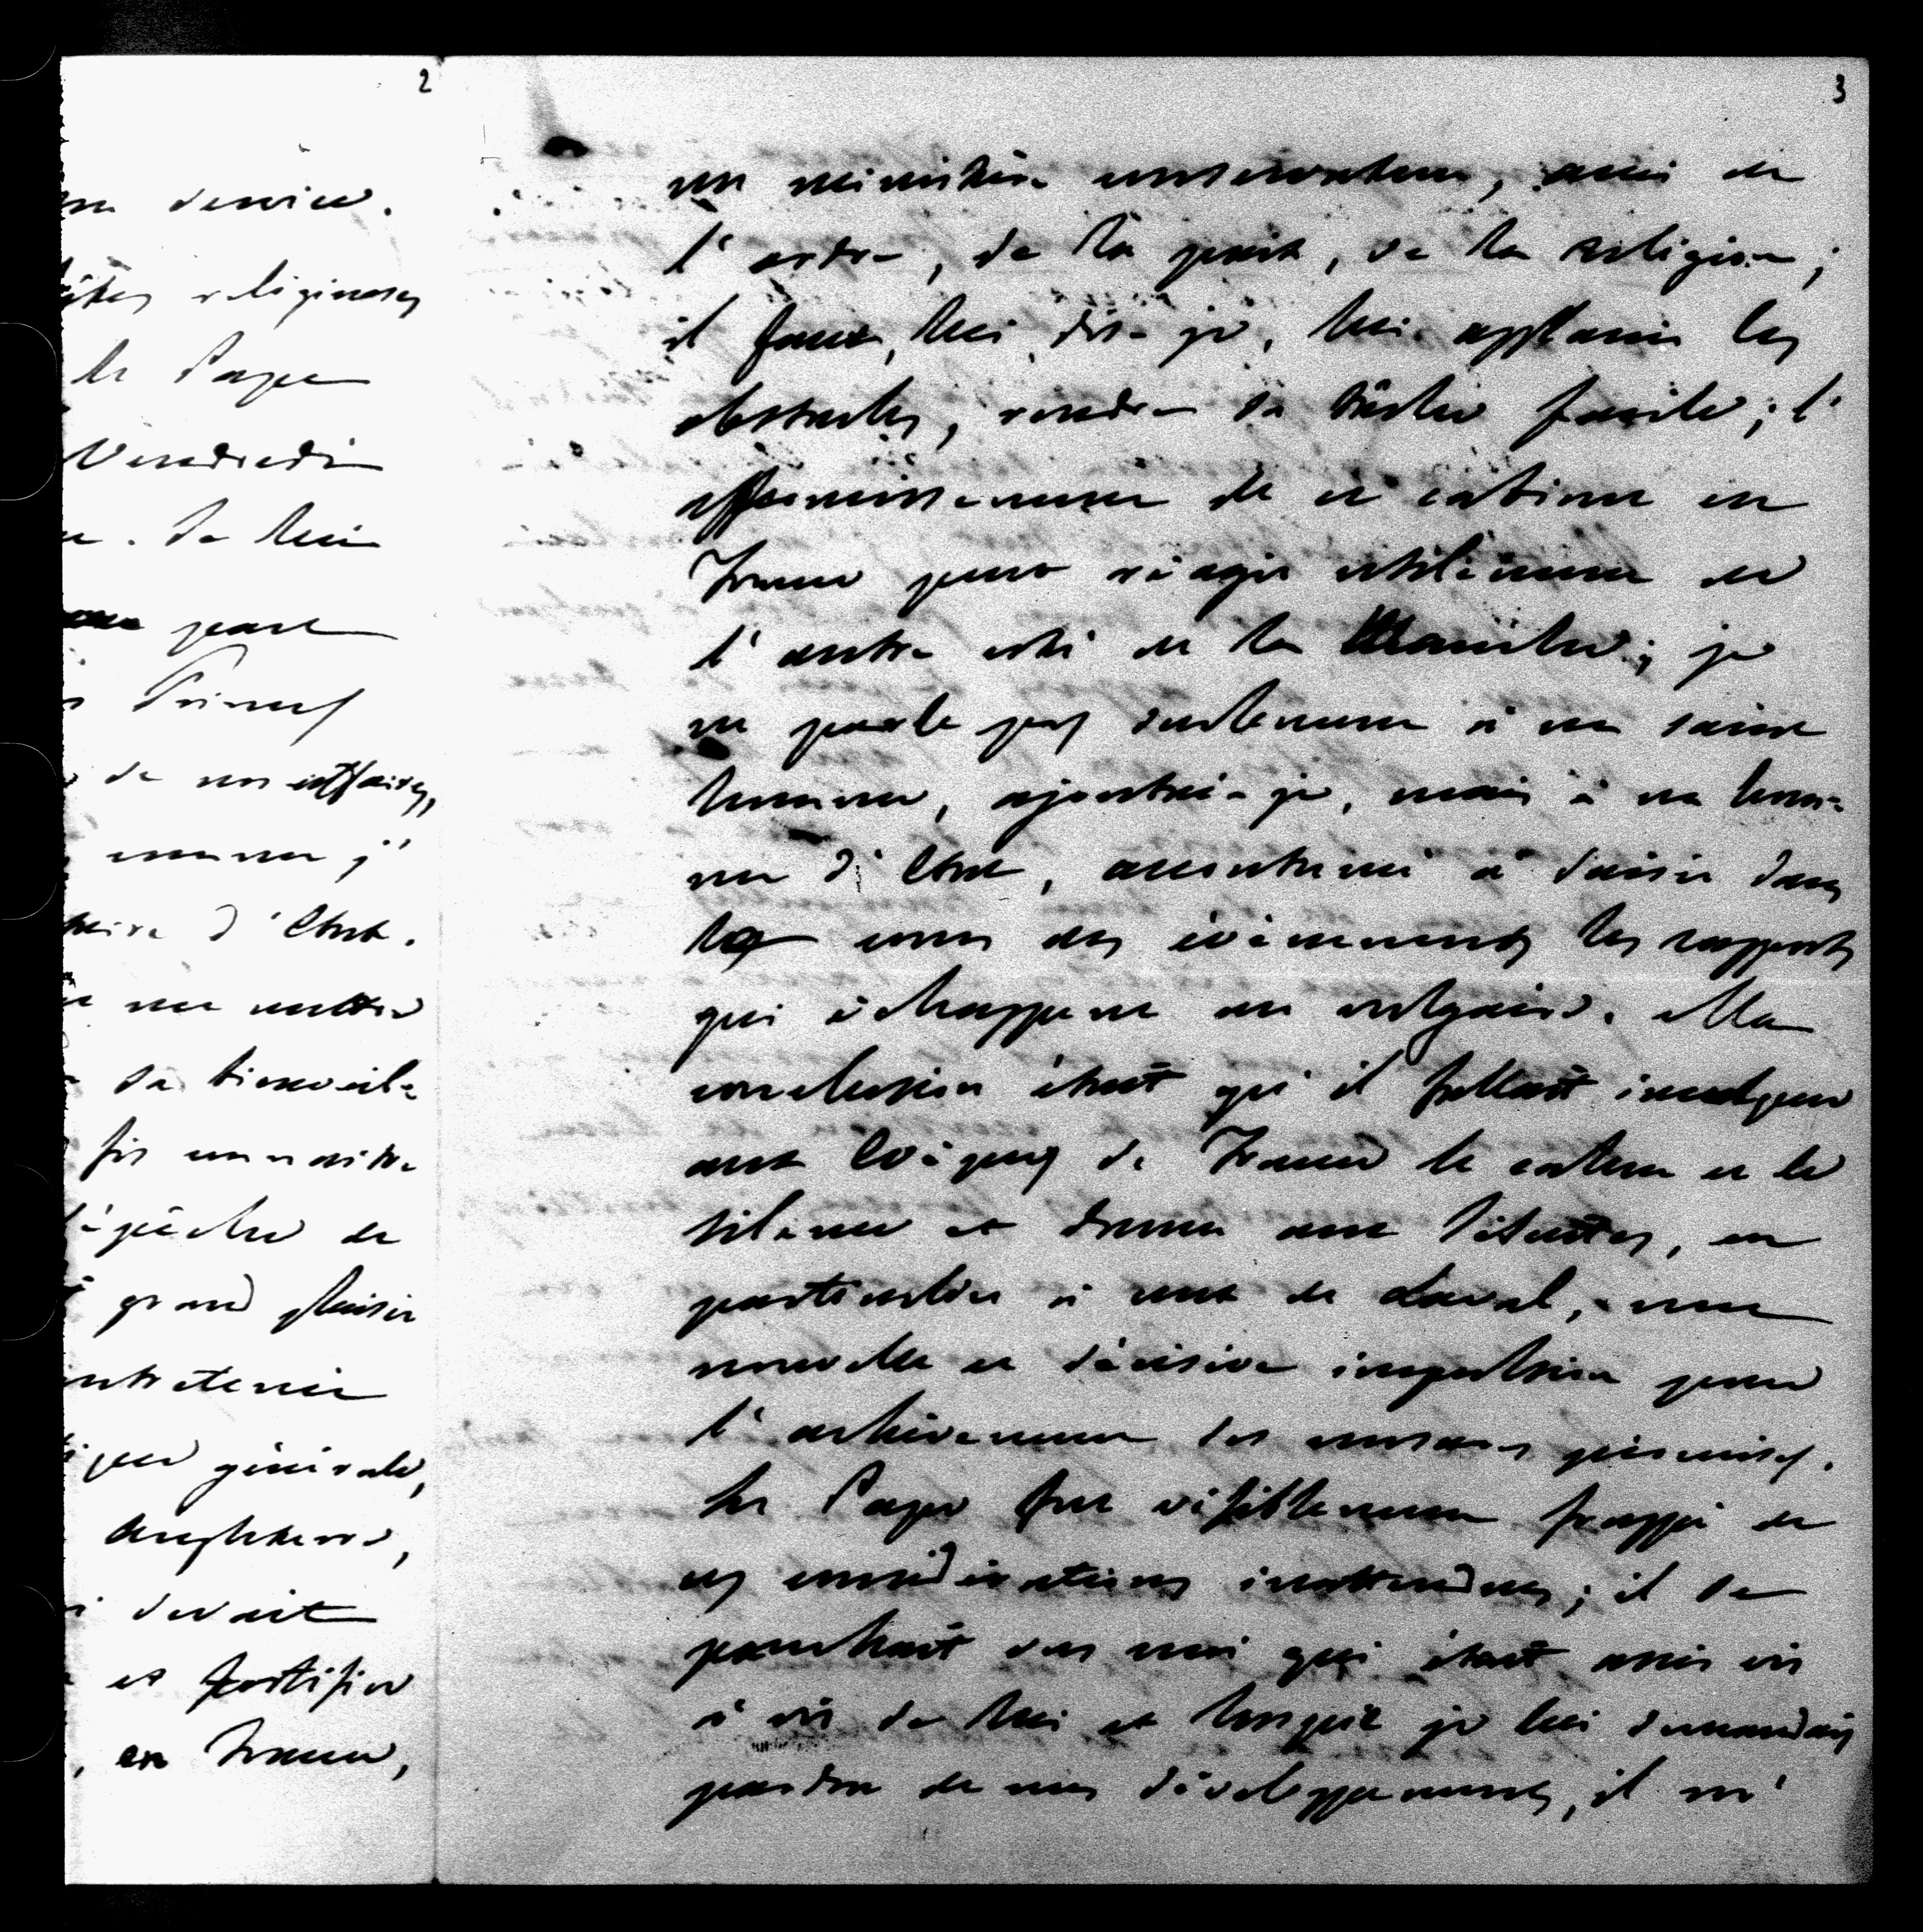 2
service.
religieuses
le Pape
Vendredi
. Je lui
part
Princes
de nos affaires,
comme j'
d'Etat.
me mettre
sa bienveil-
fis connaître
dépêche de
grand plaisir
entretenir
générale,
Angleterre,
devait
et fortifier
, en France,
3
un ministère conservateur, ami de
l'ordre, de la paix, de la religion;
il faut, lui dis-je, lui applanir les
obstacles, rendre sa tâche facile; l'
affermissement de ce cabinet en
France peut réagir utilement de
l'autre côté de la Manche; je
ne parle pas seulement à un saint
homme, ajoutai-je, mais à un hom-
me d'Etat, accoutumé à saisir dans
le cours des évènements les rapports
qui échappent au vulgaire. Ma
conclusion était qu'il fallait inculquer
aux Evèques de France le calme et le
silence et donner aux Jésuites, en
particulier à ceux de Laval, une
nouvelle et décisive impulsion pour
l'achèvement des mesures promises.
Le Pape fut visiblement frappé de
ces considérations inattendues; il se
penchait vers moi qui était assis vis
à vis de lui et lorsque je lui demandais
pardon de mes développements, il m'